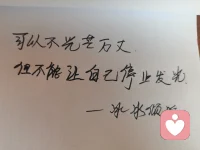 可以不光芒万丈
但不能让自己停止发光